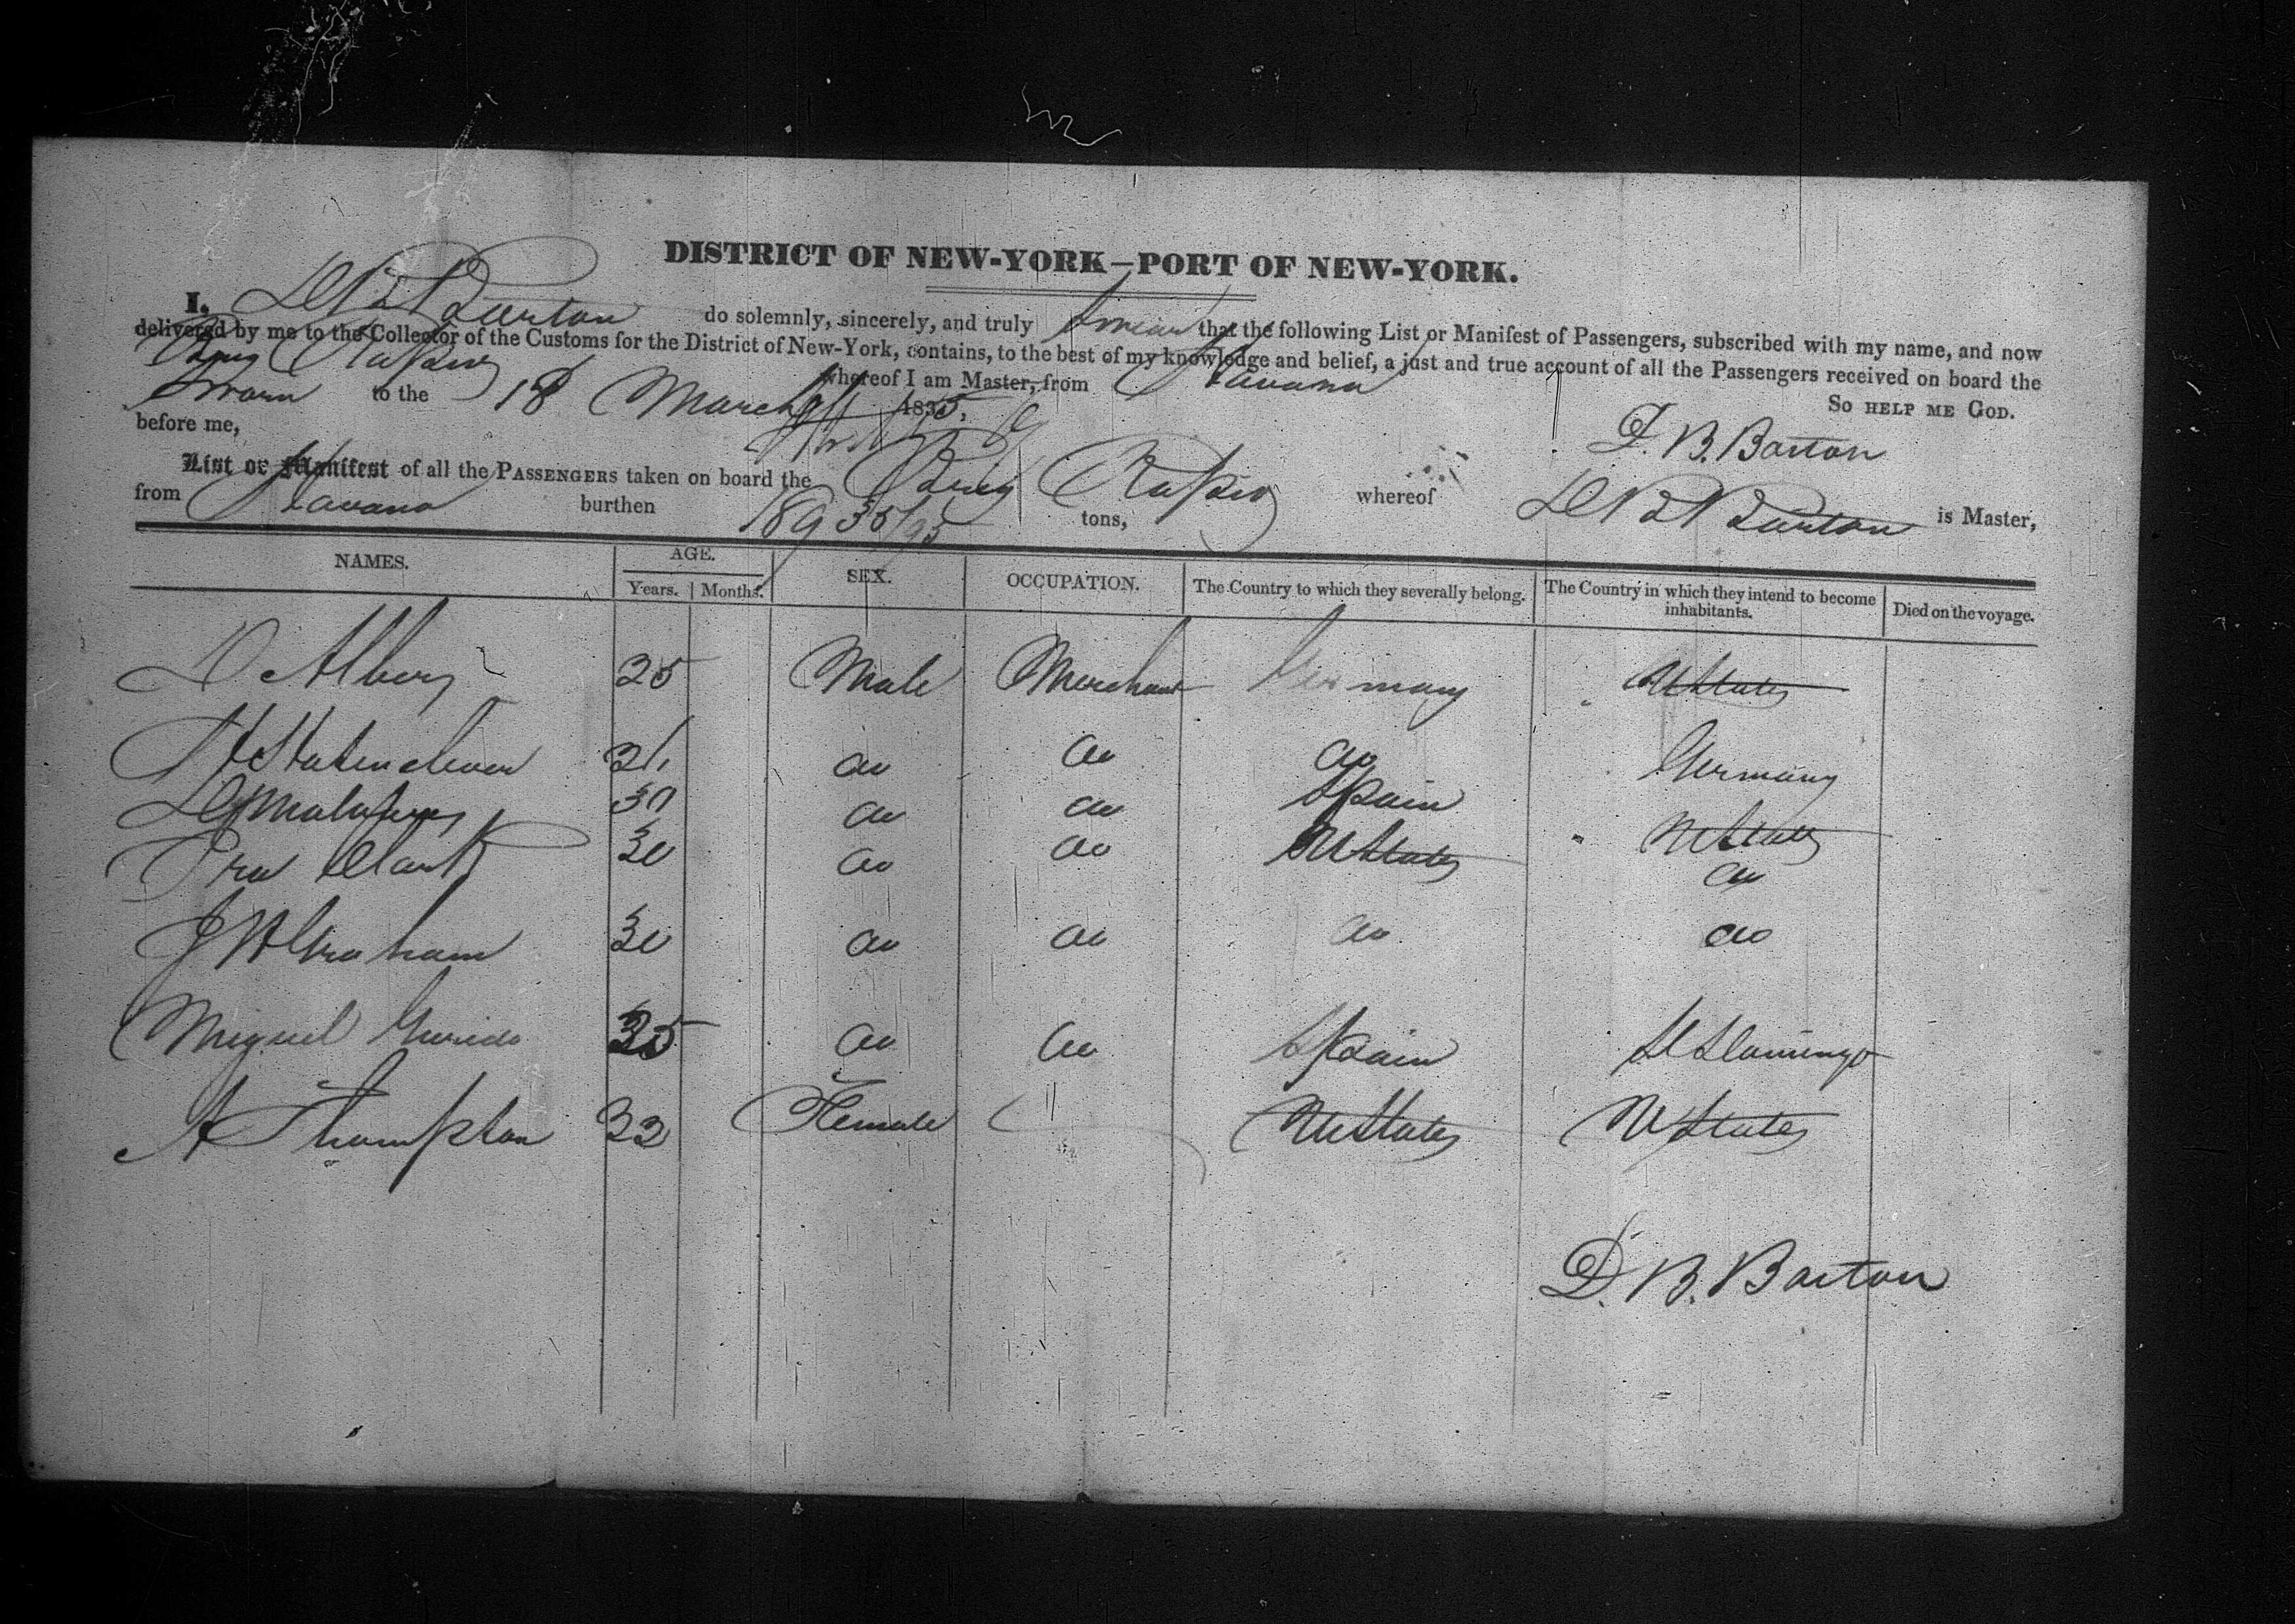 DISTRICT OF NEW-YORK—PORT OF NEW-YORK.
I, D B Barton do solemnly, sincerely, and truly swear that the following List or Manifest of Passengers, subscribed with my name, and now
delivered by me to the Collector of the Customs for the District of New-York, contains, to the best of my knowledge and belief, a just and true account of all the Passengers received on board the
Brig whereof I am Master, from Havana
SO HELP ME GOD.
Sworn to the 18 March 1835,
before me,
D. B. Barton
List or Manifest of all the PASSENGERS taken on board the Brig whereof D B Barton is Master,
from Havana burthen 189 35/95 tons,
NAMES. AGE. SEX. OCCUPATION. The Country to which they severally belong. The Country in which they intend to become inhabitants. Died on the voyage.
Years. Months.
D Albery 25 Male Merchant Germany U States
21 do do do Germany
30 do do Spain U States
Ira Clark 30 do do U States do
J W Graham 30 do do do do
Miguel 35 do do Spain St Domingo
A Thompson 32 Female U States U States
D. B. Barton